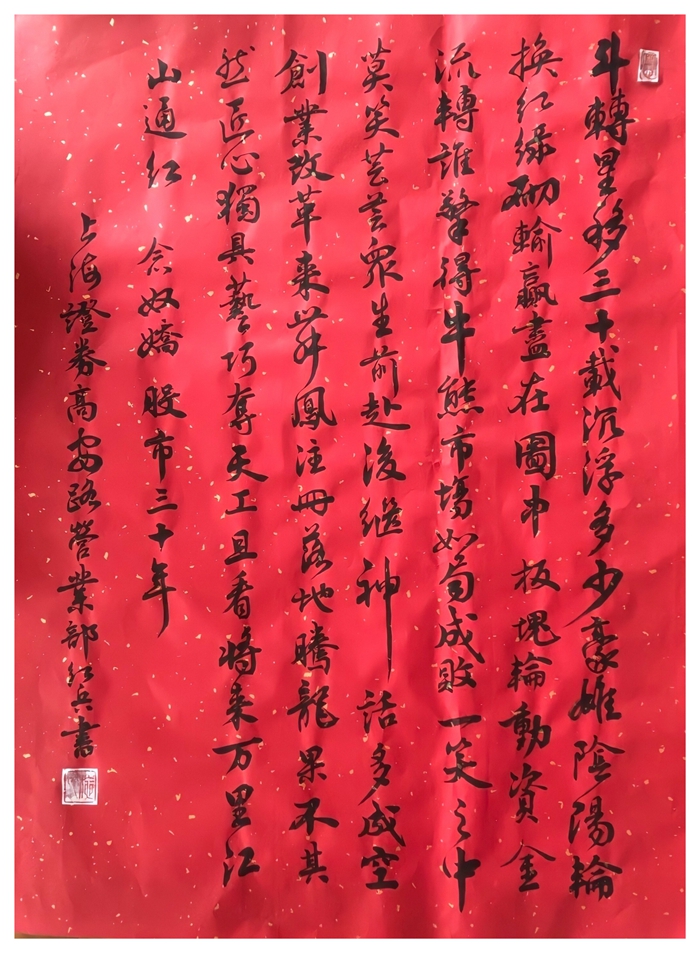 斗轉星移三十載沉浮多少豪雄陰陽輪
換紅綠砌輸贏盡在圖中板塊輪動資金
流轉誰擎得牛熊市場如荀成敗一笑之中
莫笑芸芸眾生前赴後繼神話多成空
創業改革來世舜鳳注冊落地騰龍果不其
然匠心獨具藝巧奪天工且看將來万里江
山通红 念奴嬌 股市三十年
上海證券高安路營業部红兵書